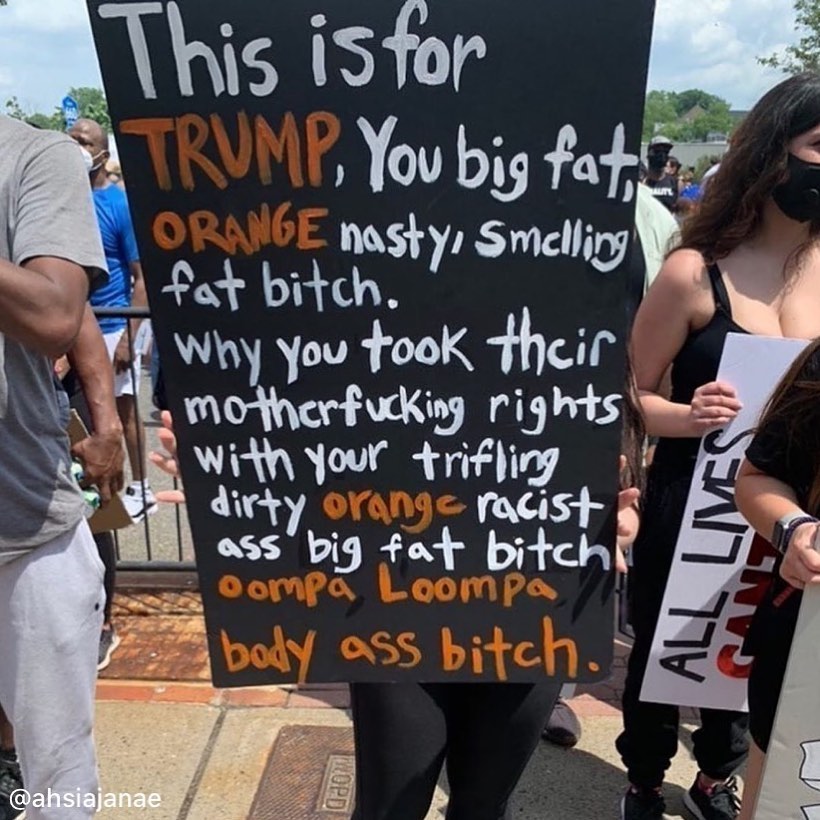 This is for
TRUMP, You big fat,
ORANGE nasty, smelling
fat bitch.
Why you took their
motherfucking rights
with your trifling
dirty orange racist
ass big fat bitch
oompa Loompa
body ass bitch.
ALL LIVES
CAN'T
@ahsiajanae